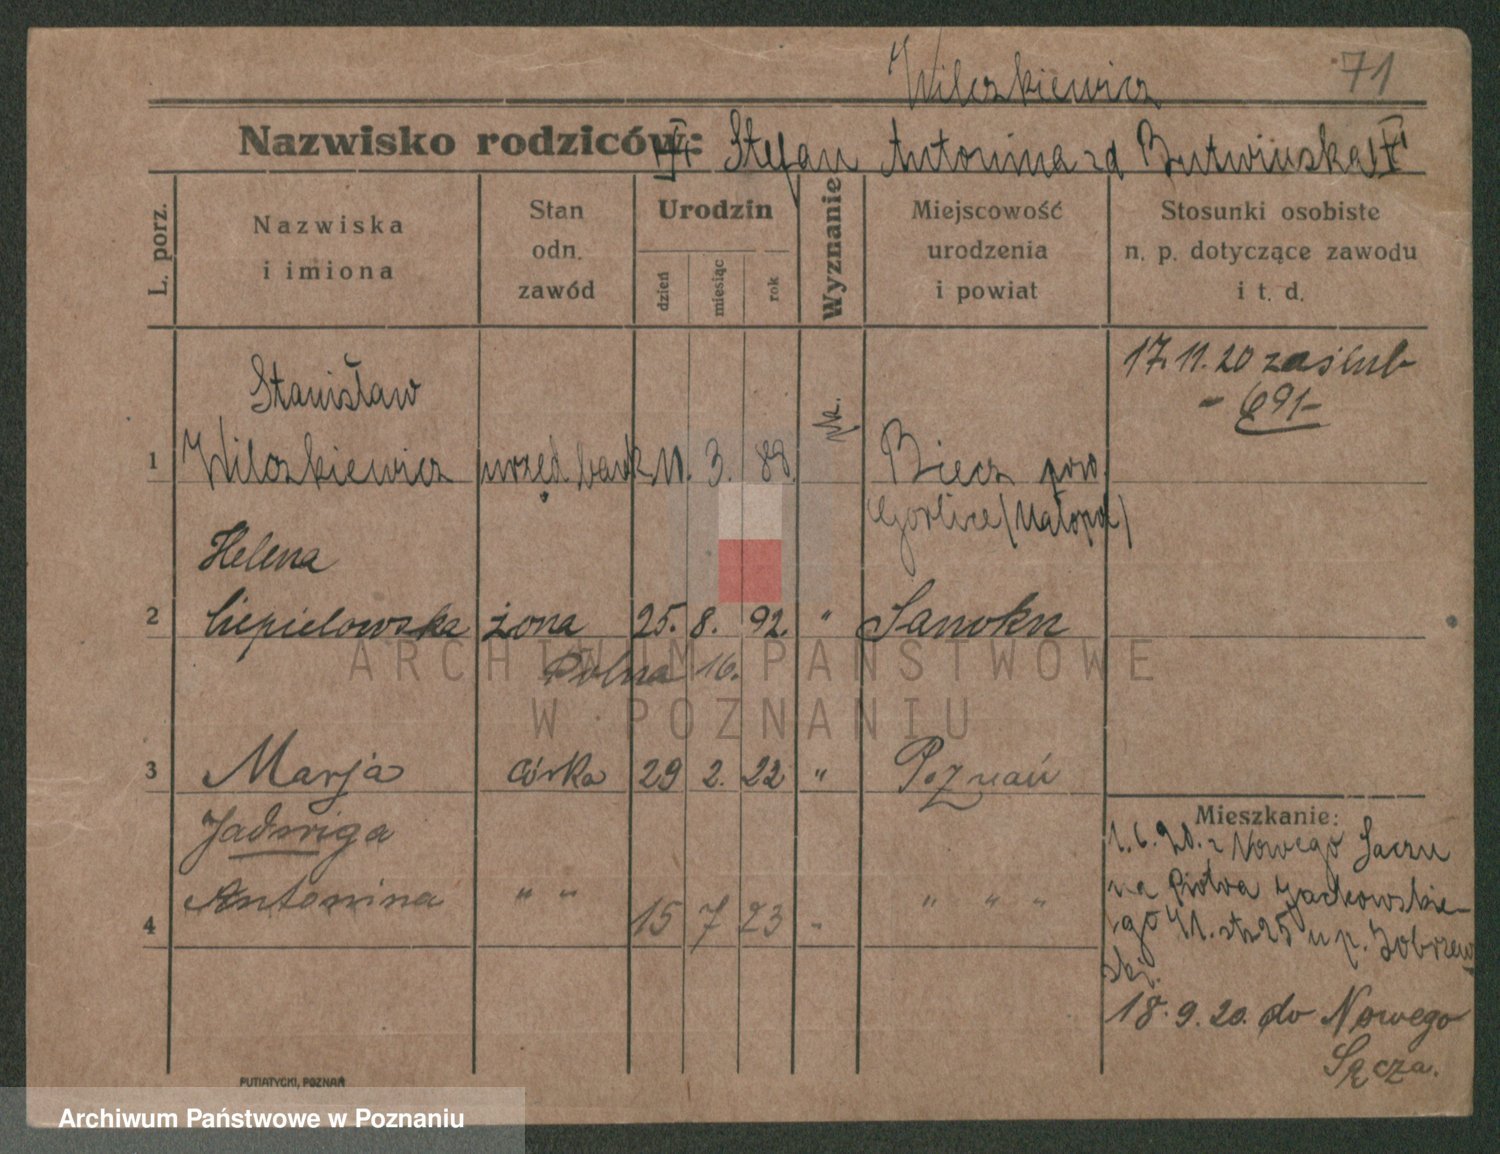 Wilczkiewicz
71
Nazwisko rodziców: Stefan Antonina zd
L. porz.
Nazwiska
i imiona
Stan
odn.
zawód
Urodzin
dzień
miesiąc
rok
Wyznanie
Miejscowość
urodzenia
i powiat
Stosunki osobiste
n. p. dotyczące zawodu
i t. d.
17.11.20 zaślub
- 691-
Stanisław
1 Wilczkiewicz urzęd. bank 11. 3. 88. rk. Biecz pow.
Gorlice (Małopol)
Helena
2 Ciepielowska żona 25. 8. 92. " Sanoku
Polna 16.
3 Marja córka 29 2. 22 " Poznań
Jadwiga
4 Antonina " " 15 7 23 " " " "
Mieszkanie:
1.6.20. z Nowego Sączu
na Piotra Jackowskie-
go 41. str 25 u p. Dobrzew
ski.
18.9.20. do Nowego
Sącza.
PUTIATYCKI, POZNAŃ
ARCHIWUM PAŃSTWOWE
W POZNANIU
Archiwum Państwowe w Poznaniu